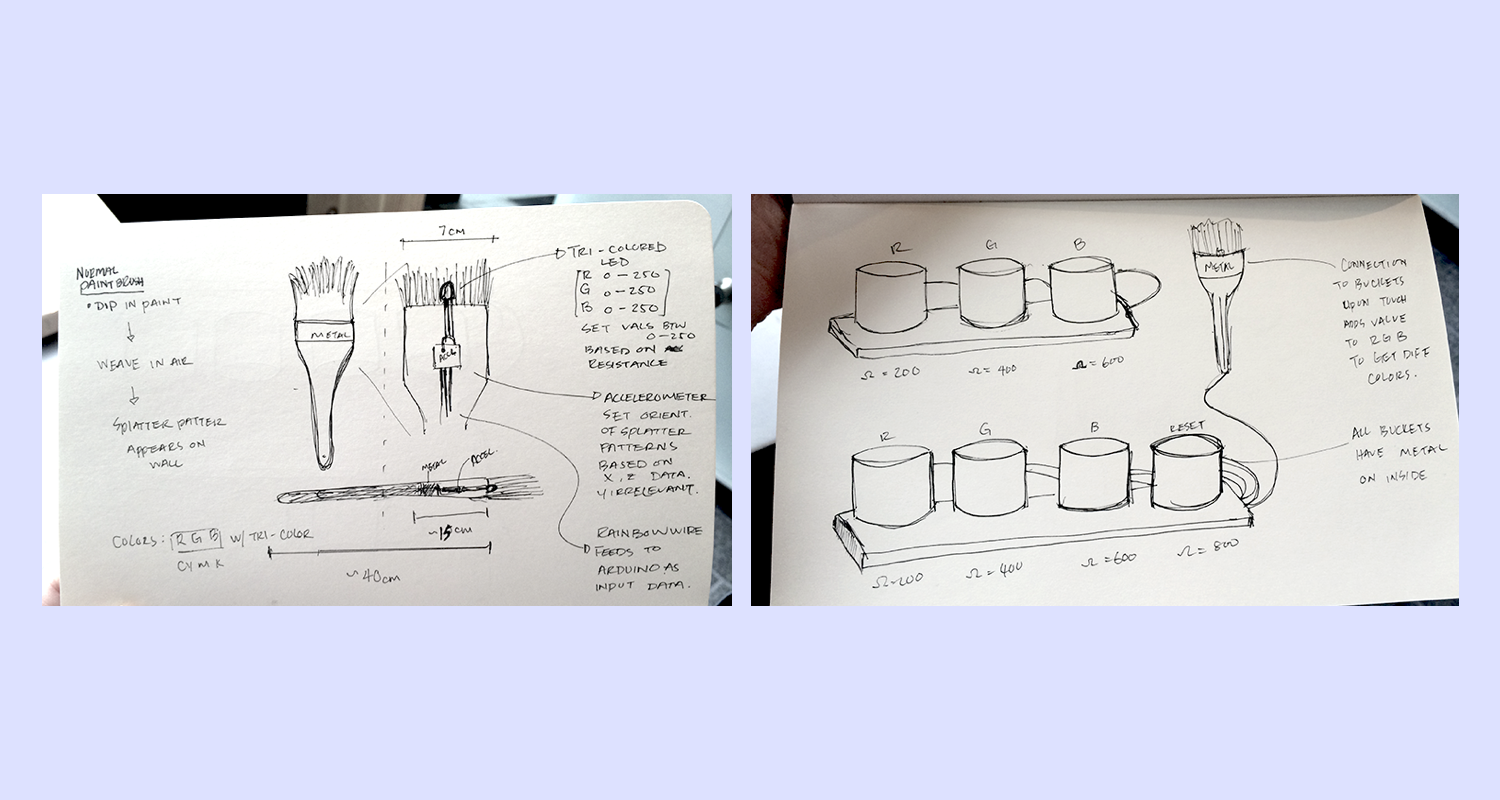 NORMAL
PAINTBRUSH
• DIP IN PAINT
WEAVE IN AIR
SPLATTER PATTER
APPEARS ON
WALL
METAL
7 CM
ACCL
TRI-COLORED
LED
R 0-250
G 0-250
B 0-250
SET VALS BTW
0-250
BASED ON
RESISTANCE
ACCELEROMETER
SET ORIENT.
OF SPLATTER
PATTERNS
BASED ON
X, Z DATA.
Y IRRELEVANT.
RAINBOW WIRE
FEEDS TO
ARDUINO AS
INPUT DATA.
METAL
ACCEL.
~15cm
~40cm
COLORS: RGB W/ TRI-COLOR
CYMK
R G B
Ω = 200 Ω = 400 Ω = 600
METAL
CONNECTION
TO BUCKETS
UPON TOUCH
ADDS VALUE
TO RGB
TO GET DIFF
COLORS.
R G B RESET
Ω=200 Ω = 400 Ω = 600 Ω = 800
ALL BUCKETS
HAVE METAL
ON INSIDE